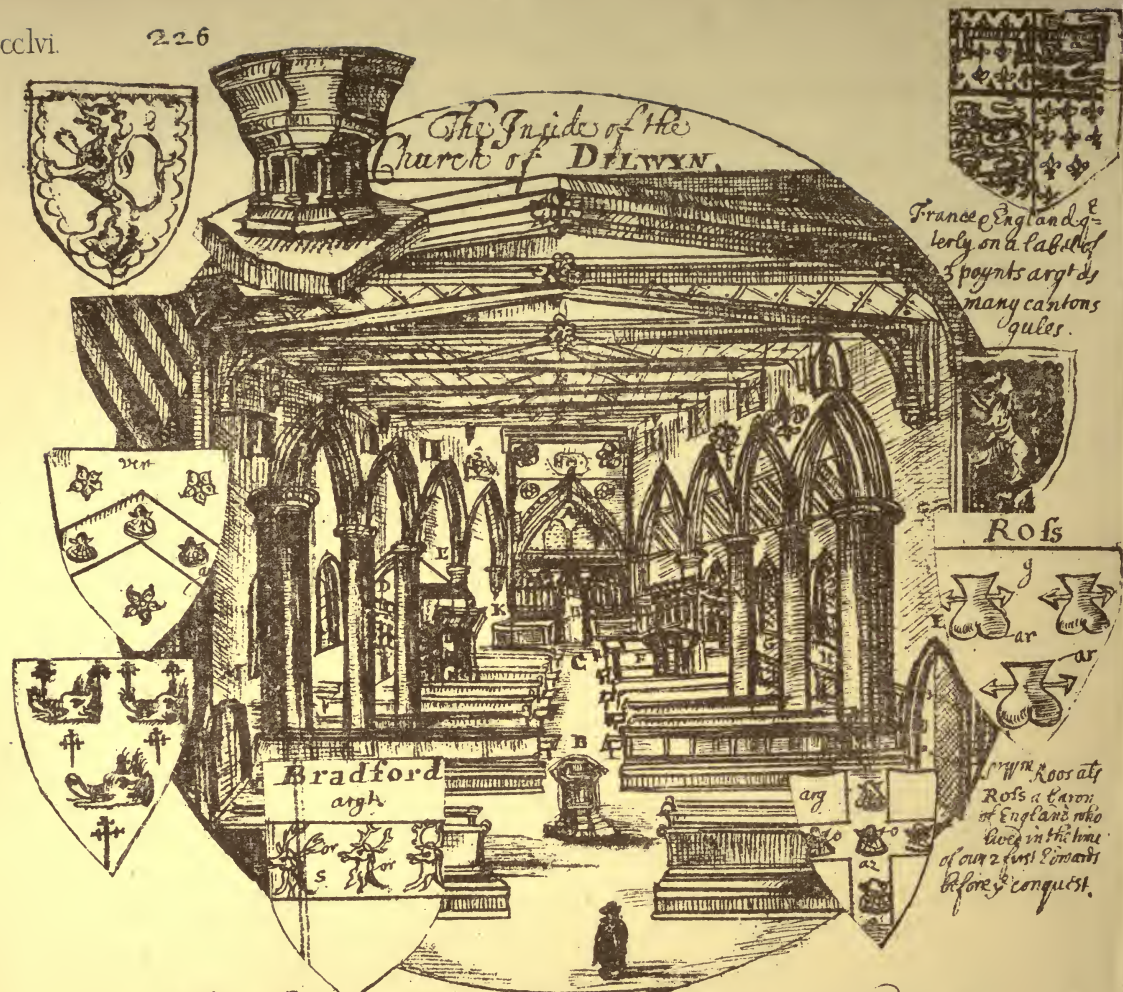 cclvi.
226
The Inside of the
Church of DILWYN.
France & England q^t
terly on a label of
3 poynts arg^t as
many cantons
gules.
ver
Ross
g
ar
ar
E
K
C
F
B
Bradford
arg^t
or
or
s
arg
az
S^r W^m Roos als
Ross a baron
of England who
lived in the time
of our 2 first Edwards
before y^e conquest.